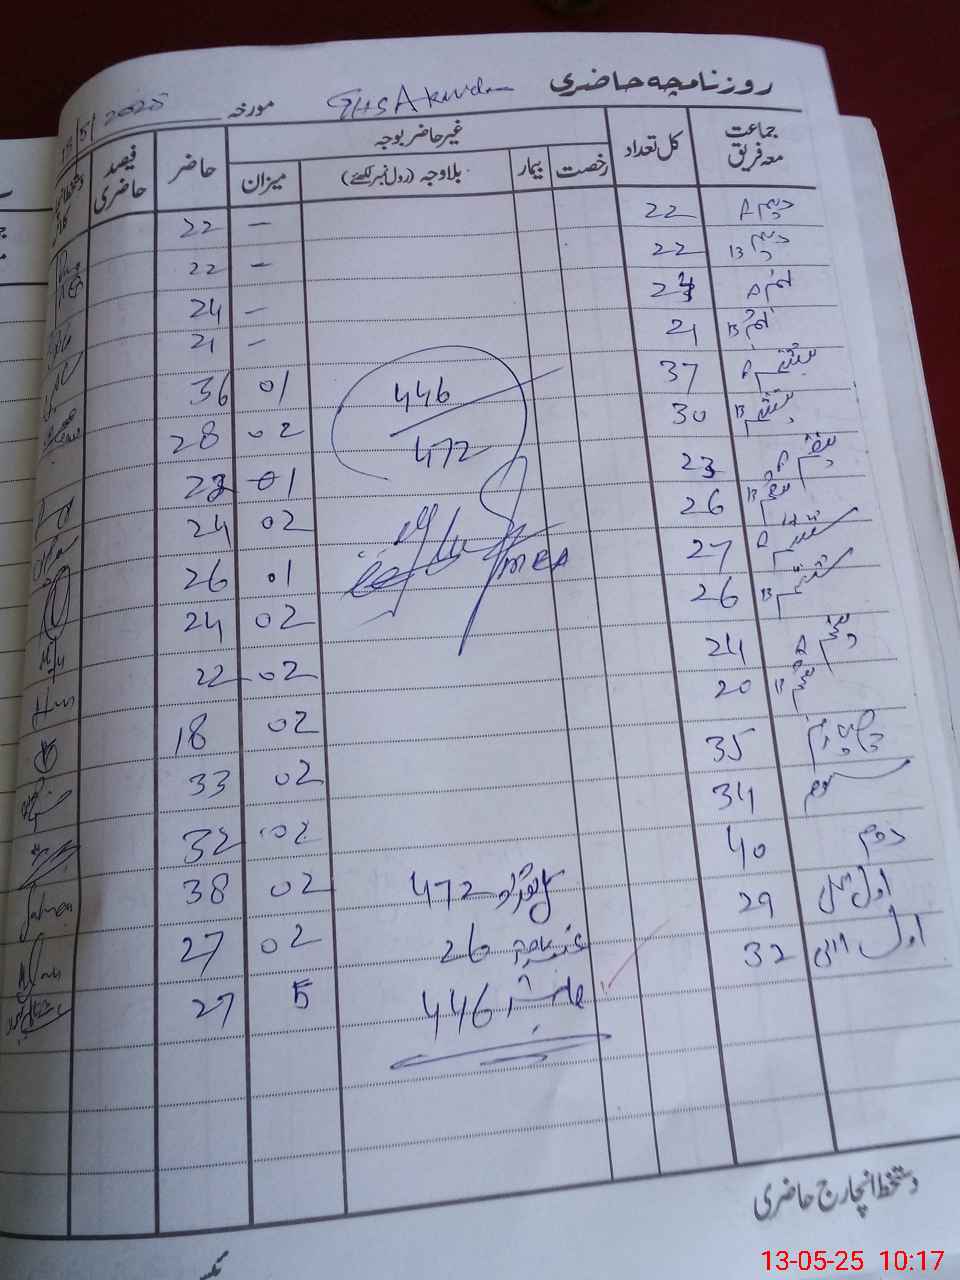 روزنامچہ حاضری GHS Akurdn مورخہ 13/5/2025
جماعت معہ فریق کل تعداد غیر حاضر بوجہ حاضر فیصد حاضری
رخصت بیمار بلاوجہ (رول نمبر لکھئے) میزان
دہم A 22 – 22
دہم B 22 – 22
نہم A 24 – 24
نہم B 21 – 21
ہشتم A 37 01 36
ہشتم B 30 02 28
446
472
ہفتم A 23 01 22
ہفتم B 26 02 24
ششم A 27 01 26
MEA
ششم B 26 02 24
پنجم A 24 02 22
پنجم B 20 02 18
چہارم 35 02 33
سوم 34 02 32
دوم 40 02 38
کل تعداد 472
اول اعلیٰ 29 02 27
غیر حاضر 26
اول ادنیٰ 32 5 27
حاضر 446
دستخط انچارج حاضری
13-05-25 10:17